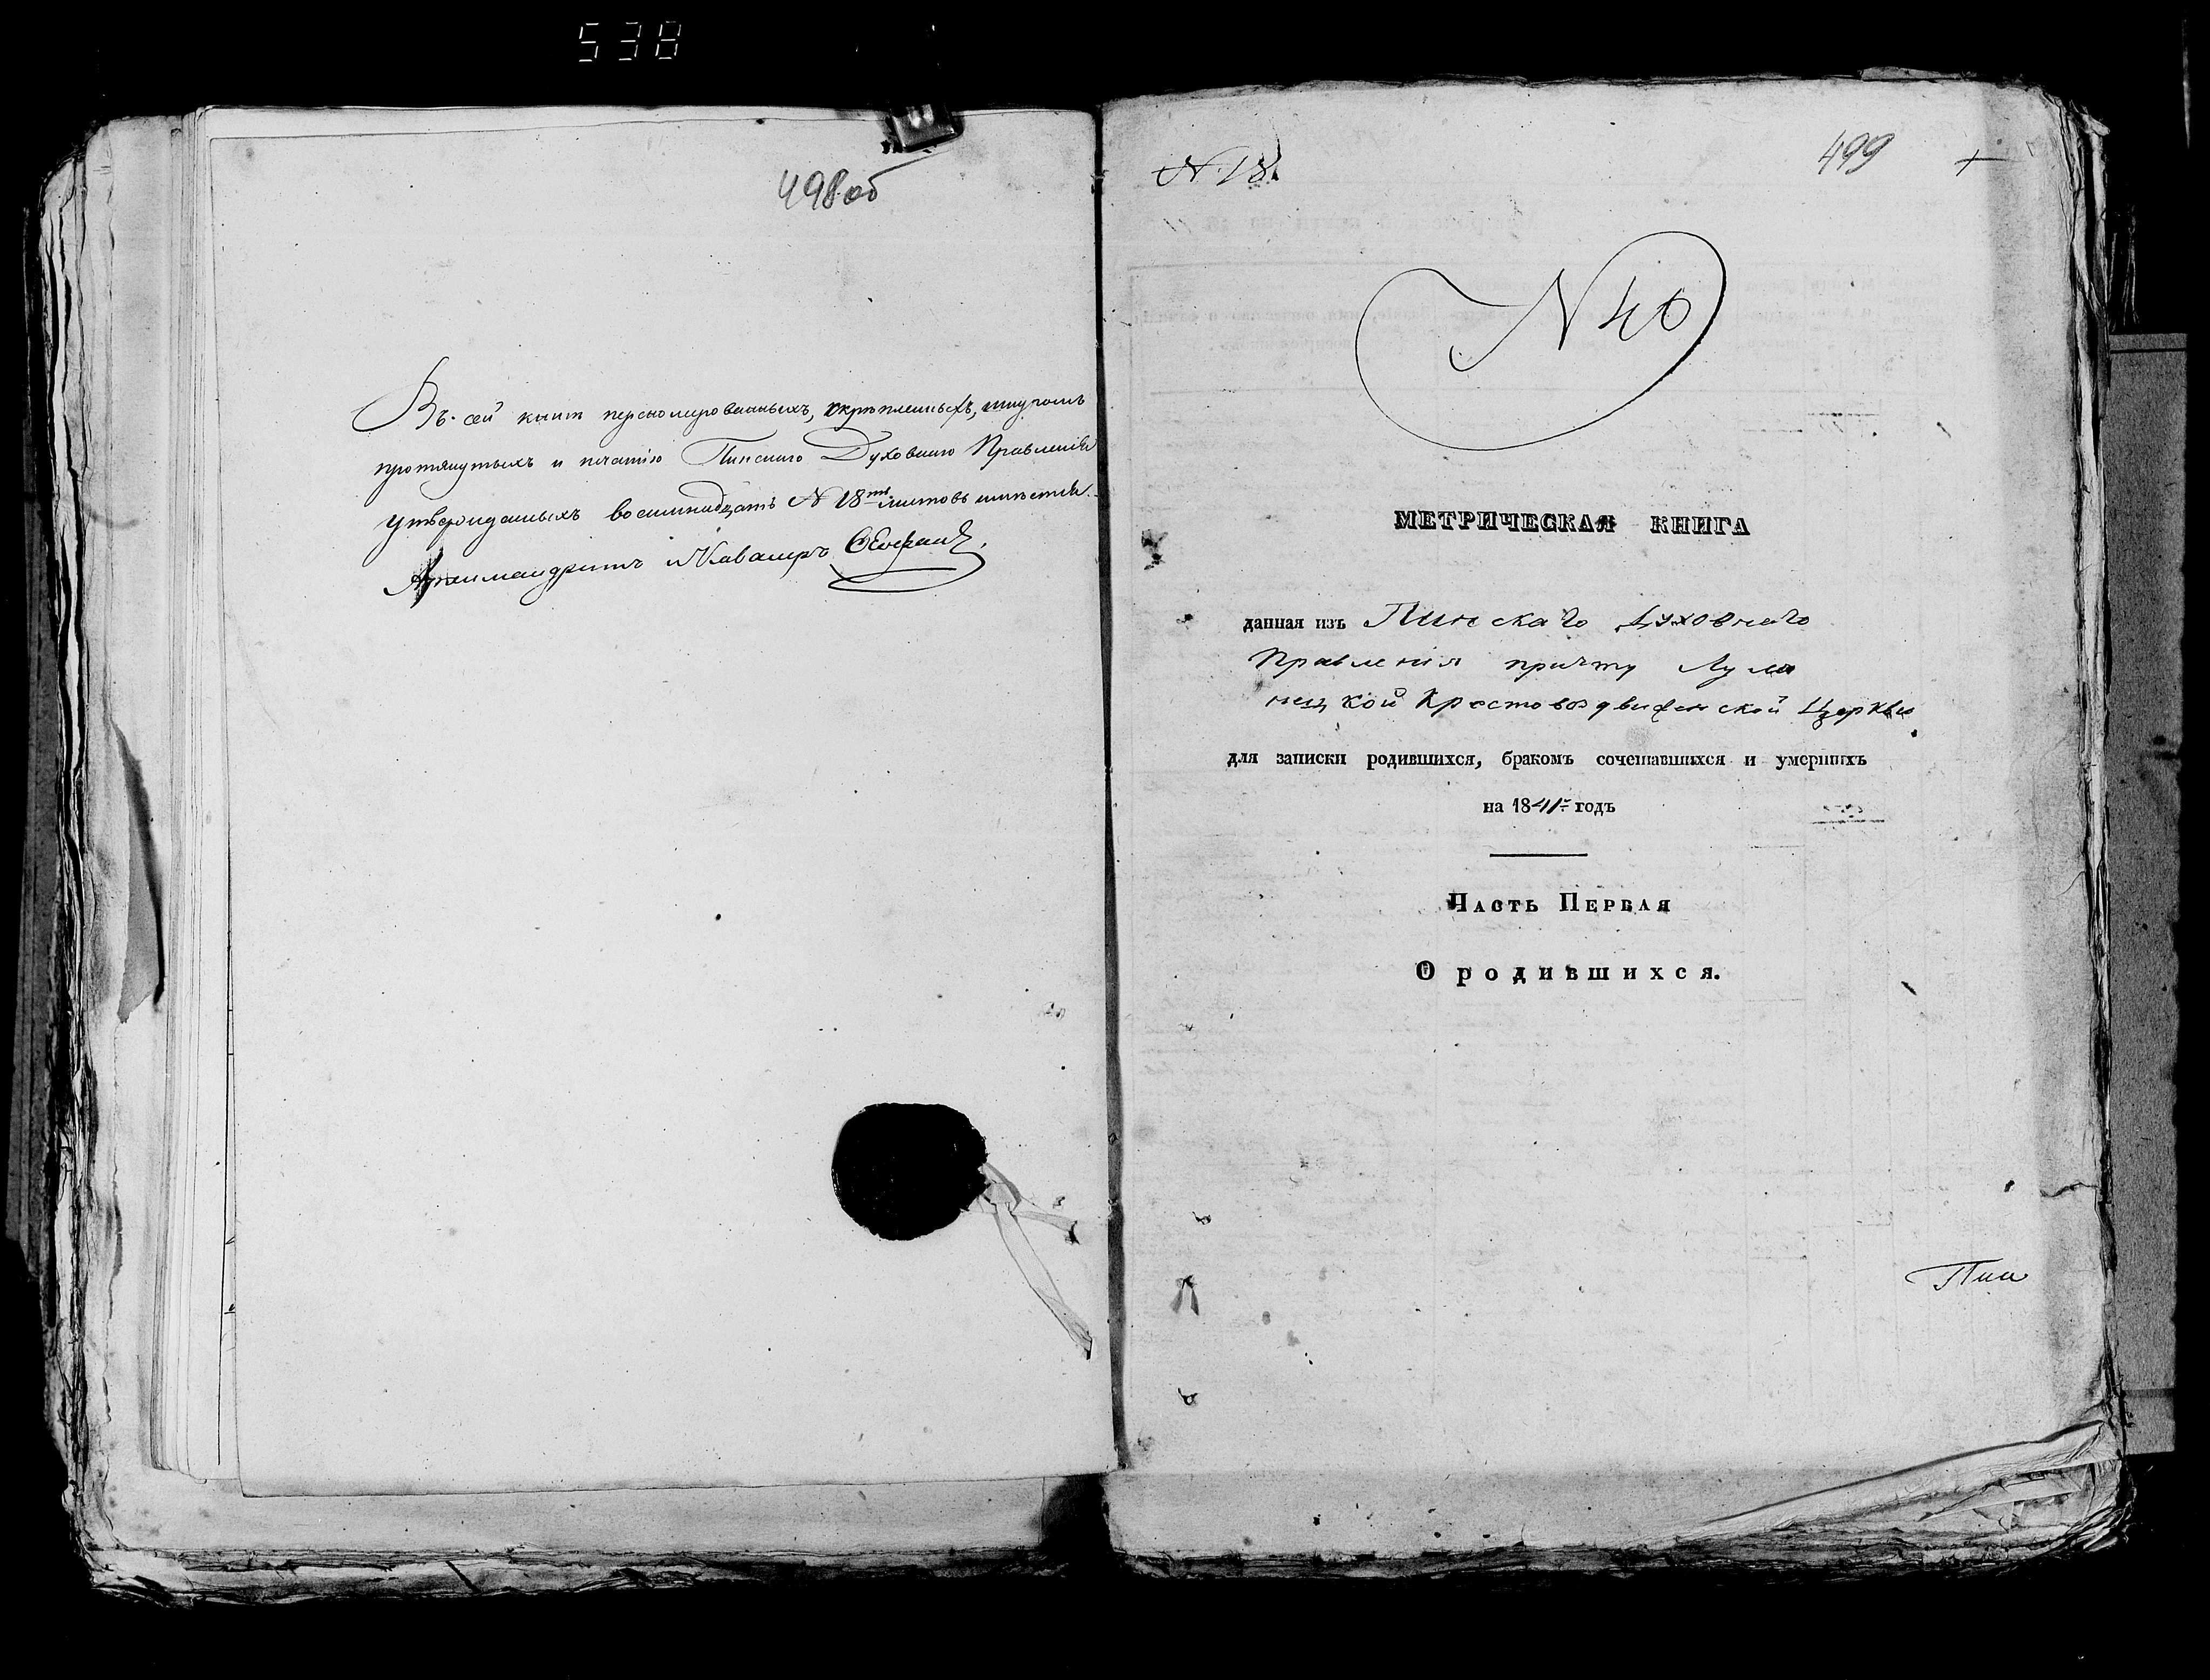 538
498об
Въ сей книгѣ перенумерованныхъ, скрѣпленныхъ, шнуромъ
протянутыхъ и печатію Пинскаго Духовнаго Правленія
утвержденныхъ восимнадцать N 18ть листовъ имѣется.
Архимандритъ и Кавалеръ
N 18.
499
N 40
МЕТРИЧЕСКАЯ КНИГА
данная изъ Пинскаго Духовнаго
Правленія причту Луни
нецкой Крестовоздвиженской Церкви
для записки родившихся, бракомъ сочетавшихся и умершихъ
на 1841й годъ
Часть Первая
О родившихся.
Пин